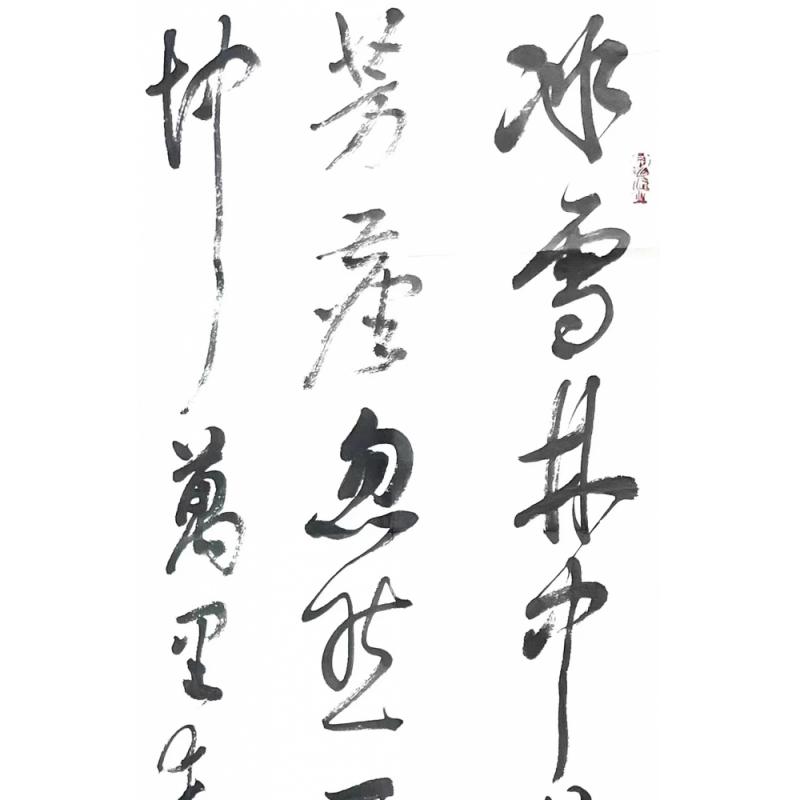 冰雪林中
芳塵忽然
坤萬里